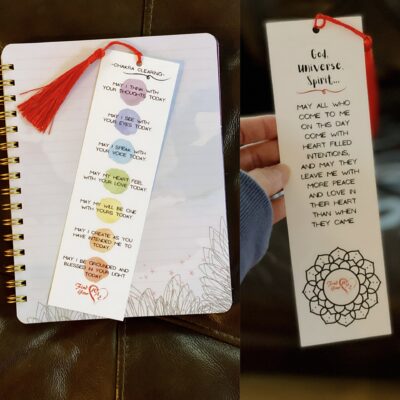 -CHAKRA CLEARING-
MAY I THINK WITH
YOUR THOUGHTS TODAY
MAY I SEE WITH
YOUR EYES TODAY
MAY I SPEAK WITH
YOUR VOICE TODAY
MAY MY HEART FEEL
WITH YOUR LOVE TODAY
MAY MY WILL BE ONE
WITH YOURS TODAY
MAY I CREATE AS YOU
HAVE INTENDED ME TO
TODAY
MAY I BE GROUNDED AND
BLESSED IN YOUR LIGHT
TODAY
God,
Universe,
Spirit...
MAY ALL WHO
COME TO ME
ON THIS DAY
COME WITH
HEART FILLED
INTENTIONS,
AND MAY THEY
LEAVE ME WITH
MORE PEACE
AND LOVE IN
THEIR HEART
THAN WHEN
THEY CAME